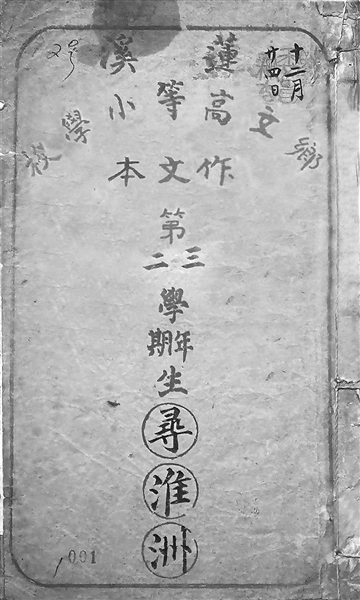 十二月
廿四日
鄉立蓮溪
高等小學校
作文本
第
三二
學
年期
生
尋淮洲